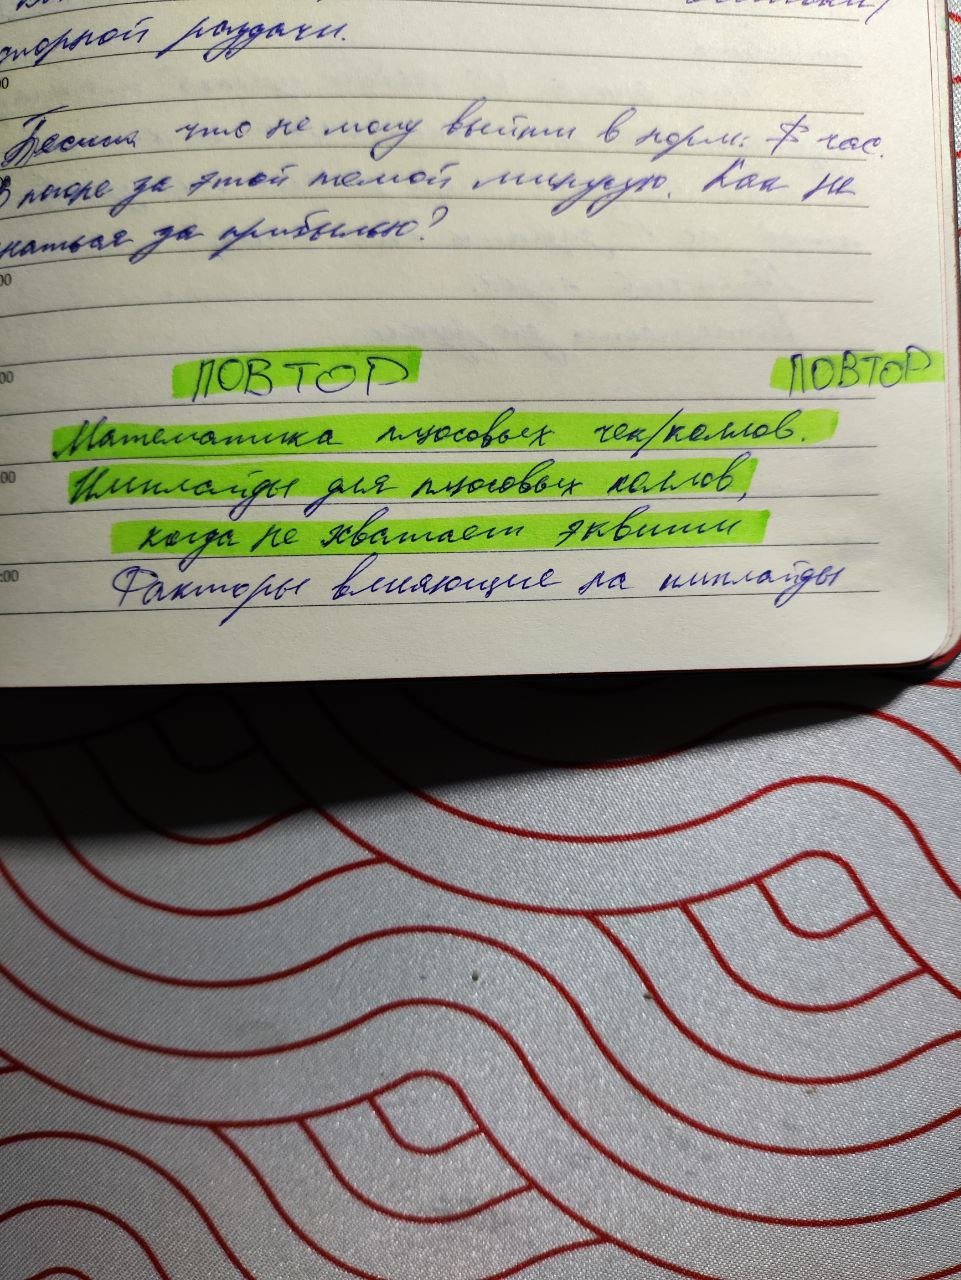 орной раздачи.
00
Бесит что не могу выйти в норм. $ час.
В покере за этой темой
Как не
гнаться за прибылью?
00
ПОВТОР ПОВТОР
00
Математика плюсовых чек/коллов.
00
Имплайды для плюсовых коллов,
когда не хватает эквити
:00
Факторы влияющие на имплайды